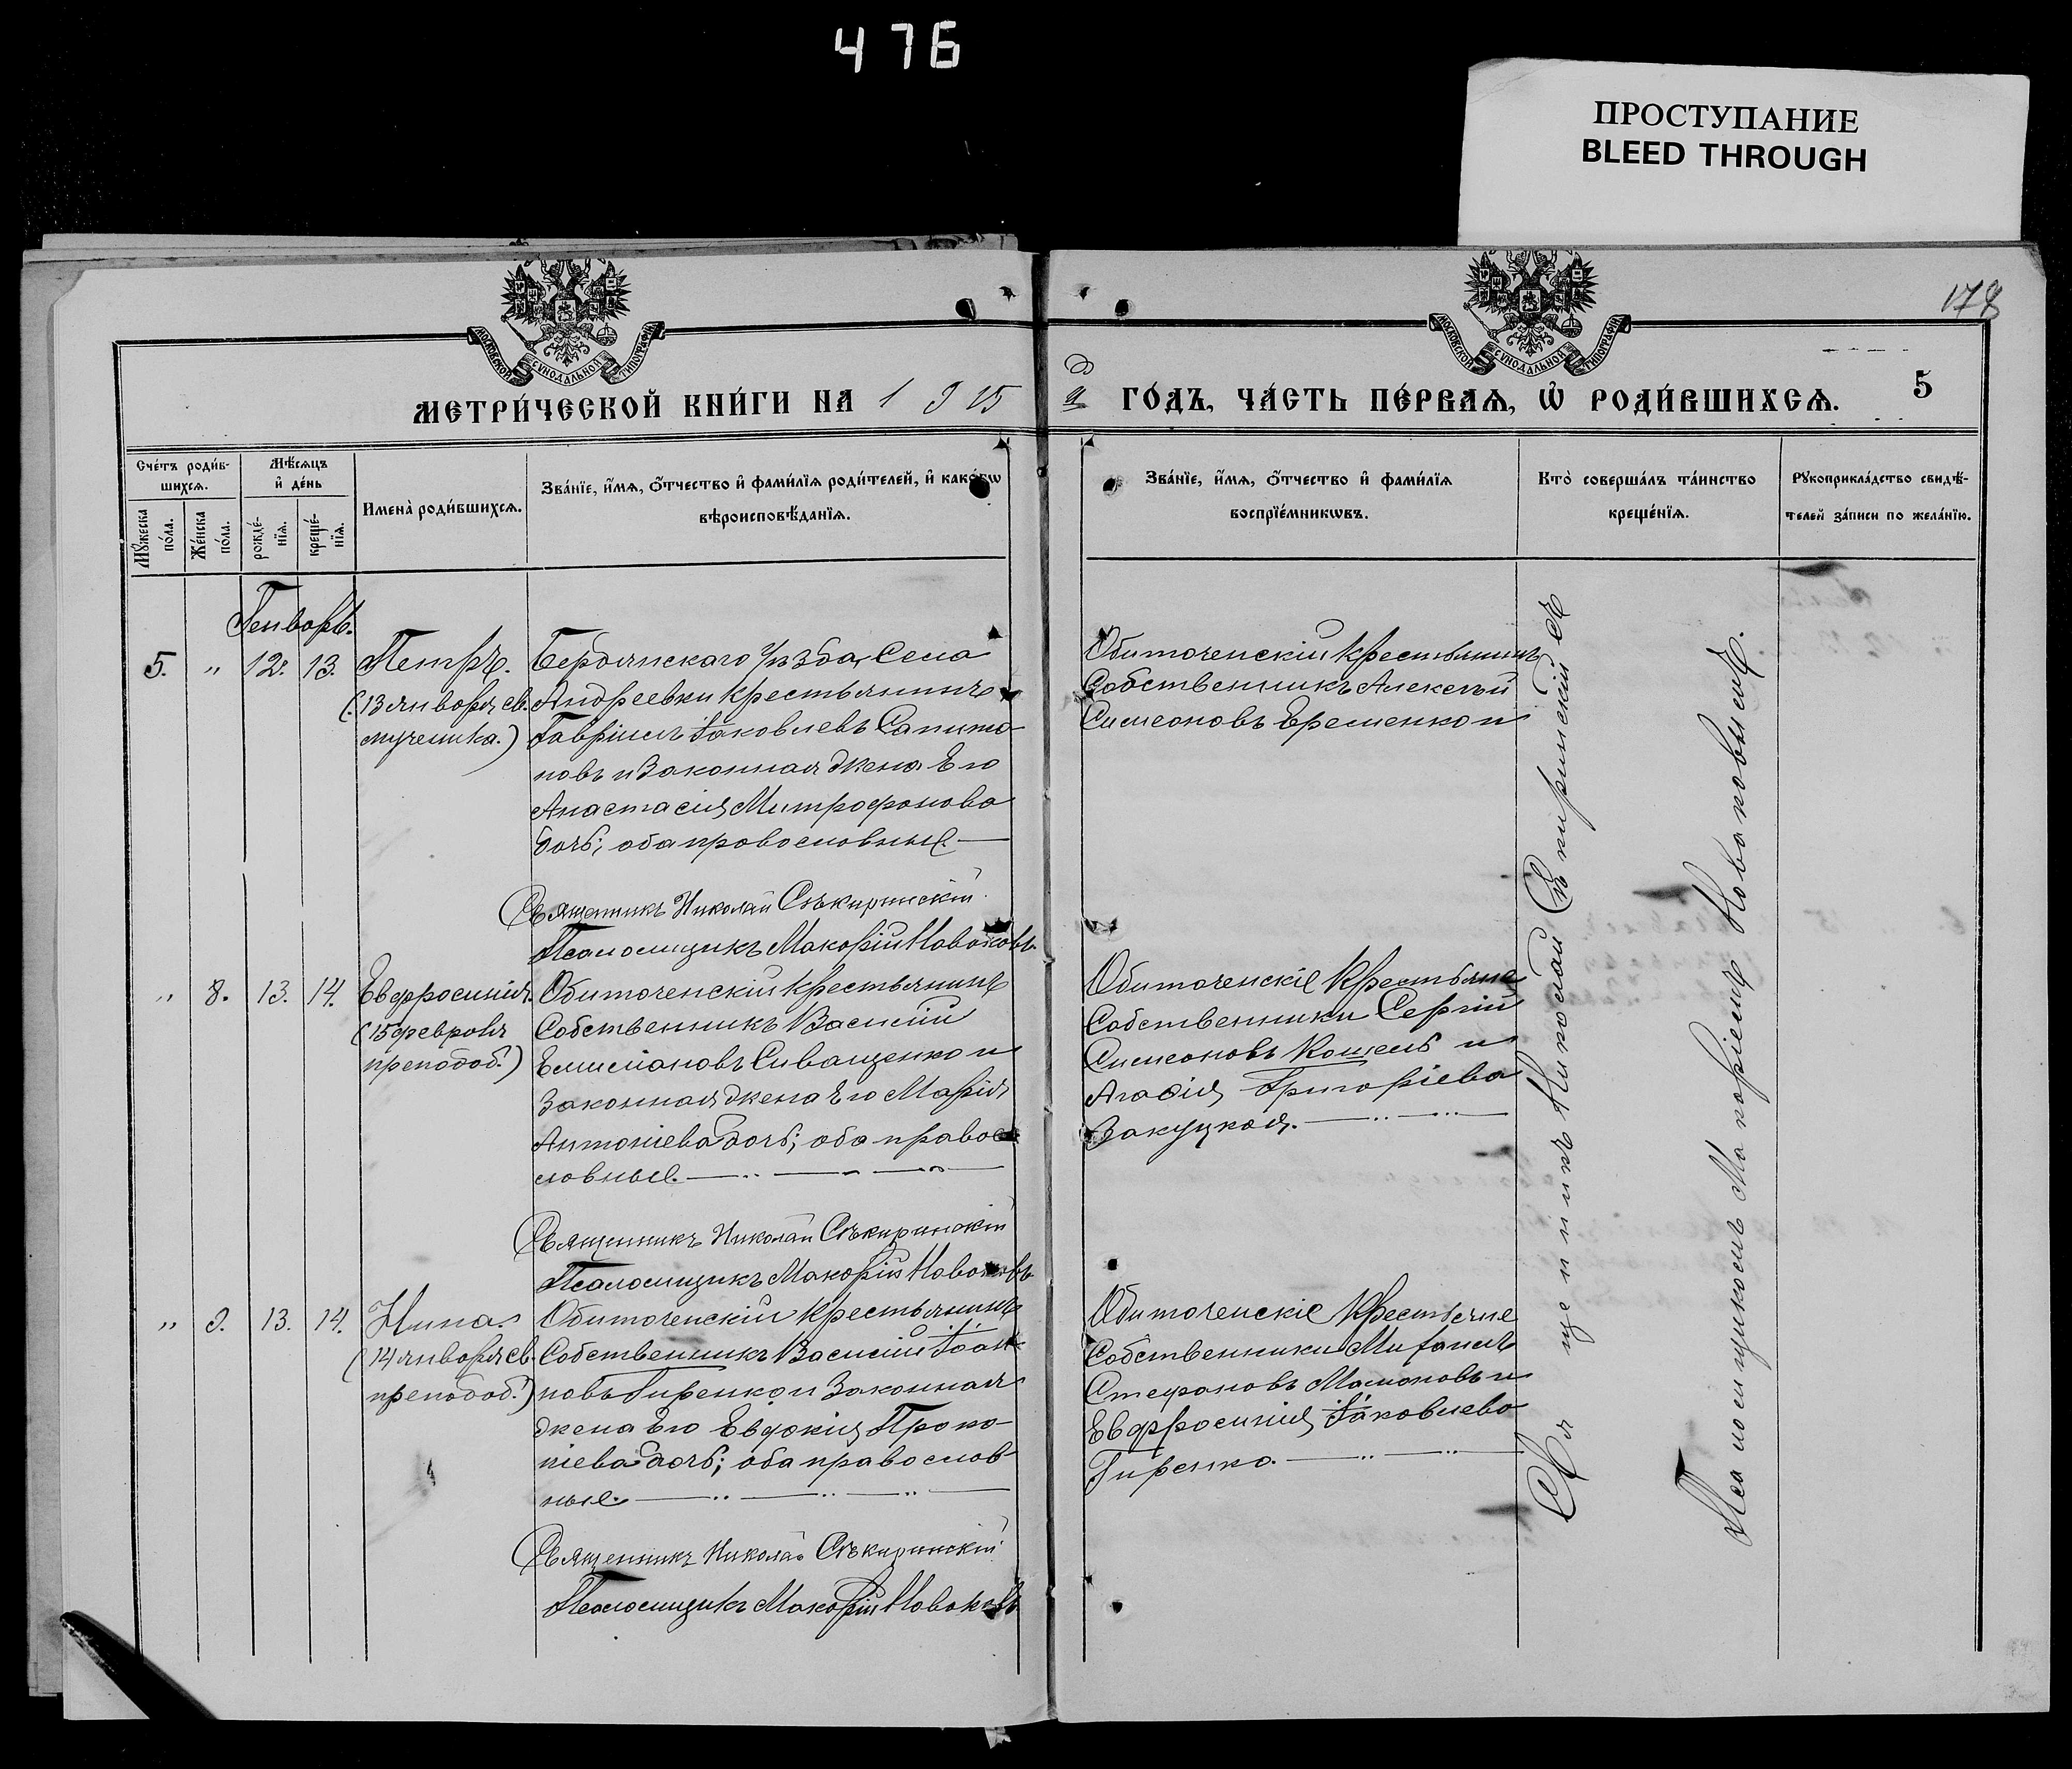 476
ПРОСТУПАНИЕ
BLEED THROUGH
178
МОСКОВСКОЙ СѴНОДАЛЬНОЙ ТИПОГРАФІИ
МОСКОВСКОЙ СѴНОДАЛЬНОЙ ТИПОГРАФІИ
МЕТРИ́ЧЕСКОЙ КНИ́ГИ НА 1915
й ГО́ДЪ, ЧА́СТЬ ПЕ́РВАѦ, Ѡ҆ РОДИ́ВШИХСѦ. 5
Сче́тъ роди́в-
шихсѧ.
Мꙋ́жеска по́ла.
Же́нска по́ла.
Мѣ́сѧцъ
и҆ де́нь
рожде́-
нїѧ.
креще́-
нїѧ.
Имена̀ роди́вшихсѧ.
Зва́нїе, и҆́мѧ, ѻ҆́тчество и҆ фами́лїѧ роди́телей, и҆ како́гѡ
вѣроисповѣ́данїѧ.
Зва́нїе, и҆́мѧ, ѻ҆́тчество и҆ фами́лїѧ
воспрїе́мникѡвъ.
Кто̀ соверша́лъ та́инство
креще́нїѧ.
Рꙋкоприкла́дство свидѣ́-
телей за́писи по жела́нїю.
Генварь.
5. " 12. 13. Петръ.
(13 января св.
мученика.)
Бердянскаго уѣзда, Села
Андреевки крестьянинъ
Гавріилъ Іаковлевъ Сапито-
новъ и Законная жена Его
Анастасія Митрофанова
дочь; оба православные.—
Священникъ Николай Сѣкиринскій
Псаломщикъ Макарій Новаковъ
Обиточенскій крестьянинъ
Собственникъ Алексѣй
Симеоновъ Еременко и
" 8. 13. 14. Евфросинія.
(15 февраля
преподоб.)
Обиточенскій крестьянинъ
Собственникъ Василій
Емиліановъ Сиващенко и
Законная жена Его Марія
Антоніева дочь; оба правос-
лавные.
Священникъ Николай Сѣкиринскій
Псаломщикъ Макарій Новаковъ
Обиточенскіе Крестьяне
Собственники Сергій
Симеоновъ Кошель и
Агафія Григоріева
Закуцкая.
" 9. 13. 14. Нина.
(14 января св.
преподоб.)
Обиточенскій крестьянинъ
Собственникъ Василій Іоан-
новъ Гиренко и Законная
жена Его Евдокія Проко-
піева дочь; оба православ-
ные.
Священникъ Николай Сѣкиринскій
Псаломщикъ Макарій Новаковъ
Обиточенскіе Крестьяне
Собственники Михаилъ
Стефановъ Мамоновъ и
Евфросинія Іаковлева
Гиренко.
Священникъ Николай Сѣкиринскій съ
Псаломщикомъ Макаріемъ Новаковымъ.